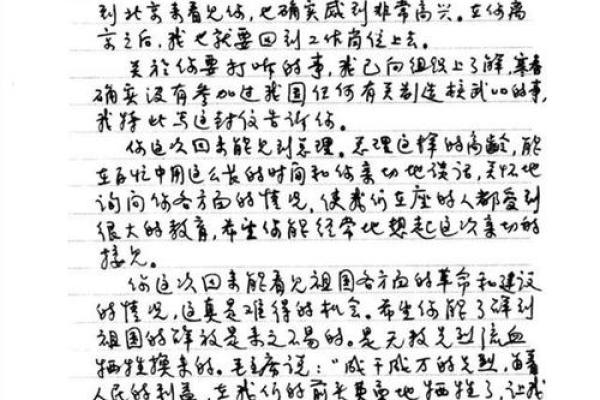 到北京来看见你，也确实感到非常高兴。在你离
京之后，我也就要回到工作岗位上去。
关於你要打听的事，我已向组织上了解，寒春
确实没有参加过我国任何有关制造核武器的事，
我特此写这封信告诉你。
你这次回来能见到总理。总理这样的高龄，能
在百忙中用这么长的时间和你亲切地谈话，关怀地
询问你各方面的情况，使我们在座的人都受到
很大的教育，希望你能经常地想起这次亲切的
接见。
你这次回来能看见祖国各方面的革命和建设
的情况，这真是难得的机会。希望你能了解到
祖国的解放是来之不易的。是无数先烈流血
牺牲换来的。毛主席说：“成千成万的先烈，为着
人民的利益，在我们的前头英勇地牺牲了，让我